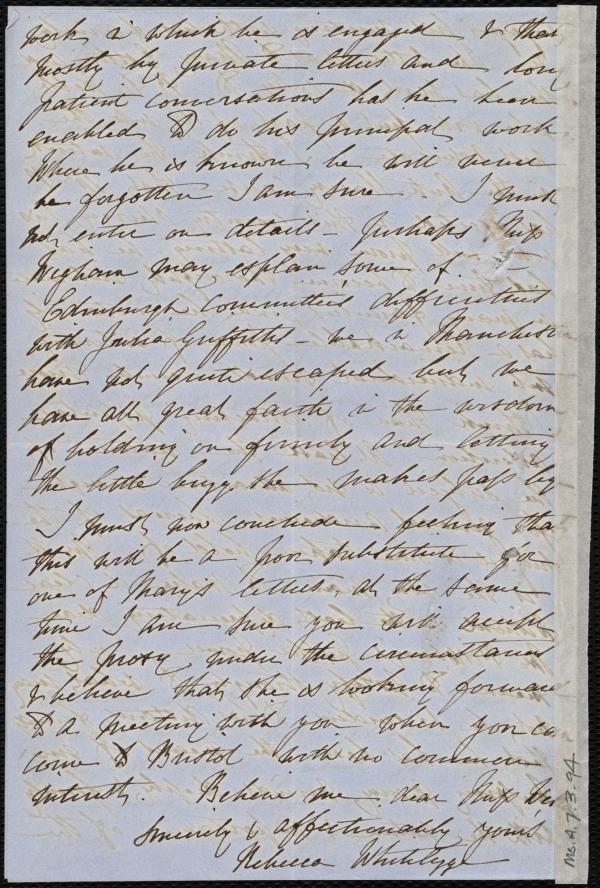 work in which he is engaged & that
mostly by private letters and long
patient conversations has he been
enabled to do his principal work
Where he is known he will never
be forgotten I am sure. I must
not enter on details - perhaps Miss
Wigham may explain some of
Edinburgh committee's difficulties
with Julia Griffiths - we in Manchester
have not quite escaped but we
have all great faith in the wisdom
of holding on firmly and letting
the little buzz she makes pass by
I must now conclude feeling that
this will be a poor substitute for
one of Mary's letters, at the same
time I am sure you will accept
the proxy under the circumstances
& believe that she is looking forward
to a meeting with you when you
come to Bristol with no common
interest. Believe me dear Miss
Sincerely & affectionately yours
Rebecca Whitelegge
Ms.A.7.3.94